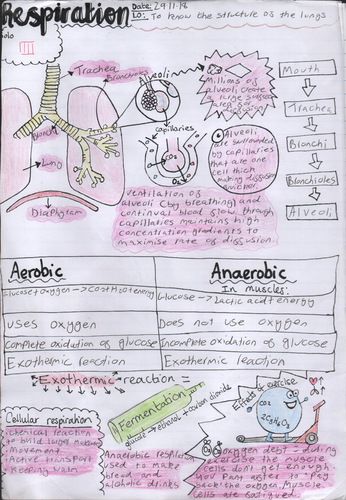 Respiration
Date: 29.11.18
LO: To know the structure of the lungs
Solo
Trachea
Bronchioles
Alveoli
Millions of
alveoli create
a large surface
area for
diffusion
Mouth
Trachea
Bronchi
Bronchioles
Alveoli
Bronchi
Lung
Diaphragm
capillaries
CO2
O2
Alveoli
are surrounded
by capillaries
that are one
cell thick
making diffusion
quicker.
ventilation of
alveoli (by breathing) and
continual blood flow through
capillaries maintains high
concentration gradients to
maximise rate of diffusion.
Aerobic
Anaerobic
In muscles:
Glucose + oxygen → CO2 + H2O + energy
Glucose → Lactic acid + energy
uses oxygen
Does not use oxygen
Complete oxidation of glucose
Incomplete oxidation of glucose
Exothermic reaction
Exothermic reaction
Exothermic reaction =
Cellular respiration:
chemical reactions
to build larger molecules
Movement
Active transport
Keeping warm
Fermentation:
glucose → ethanol + carbon dioxide
Anaerobic respiration
used to make
bread and
alcoholic drinks
Effects of exercise
CO2
oxygen debt - during
exercise the muscle
cells don't get enough.
You pant after to "pay
back" the oxygen. Muscle
cells are fatigued.